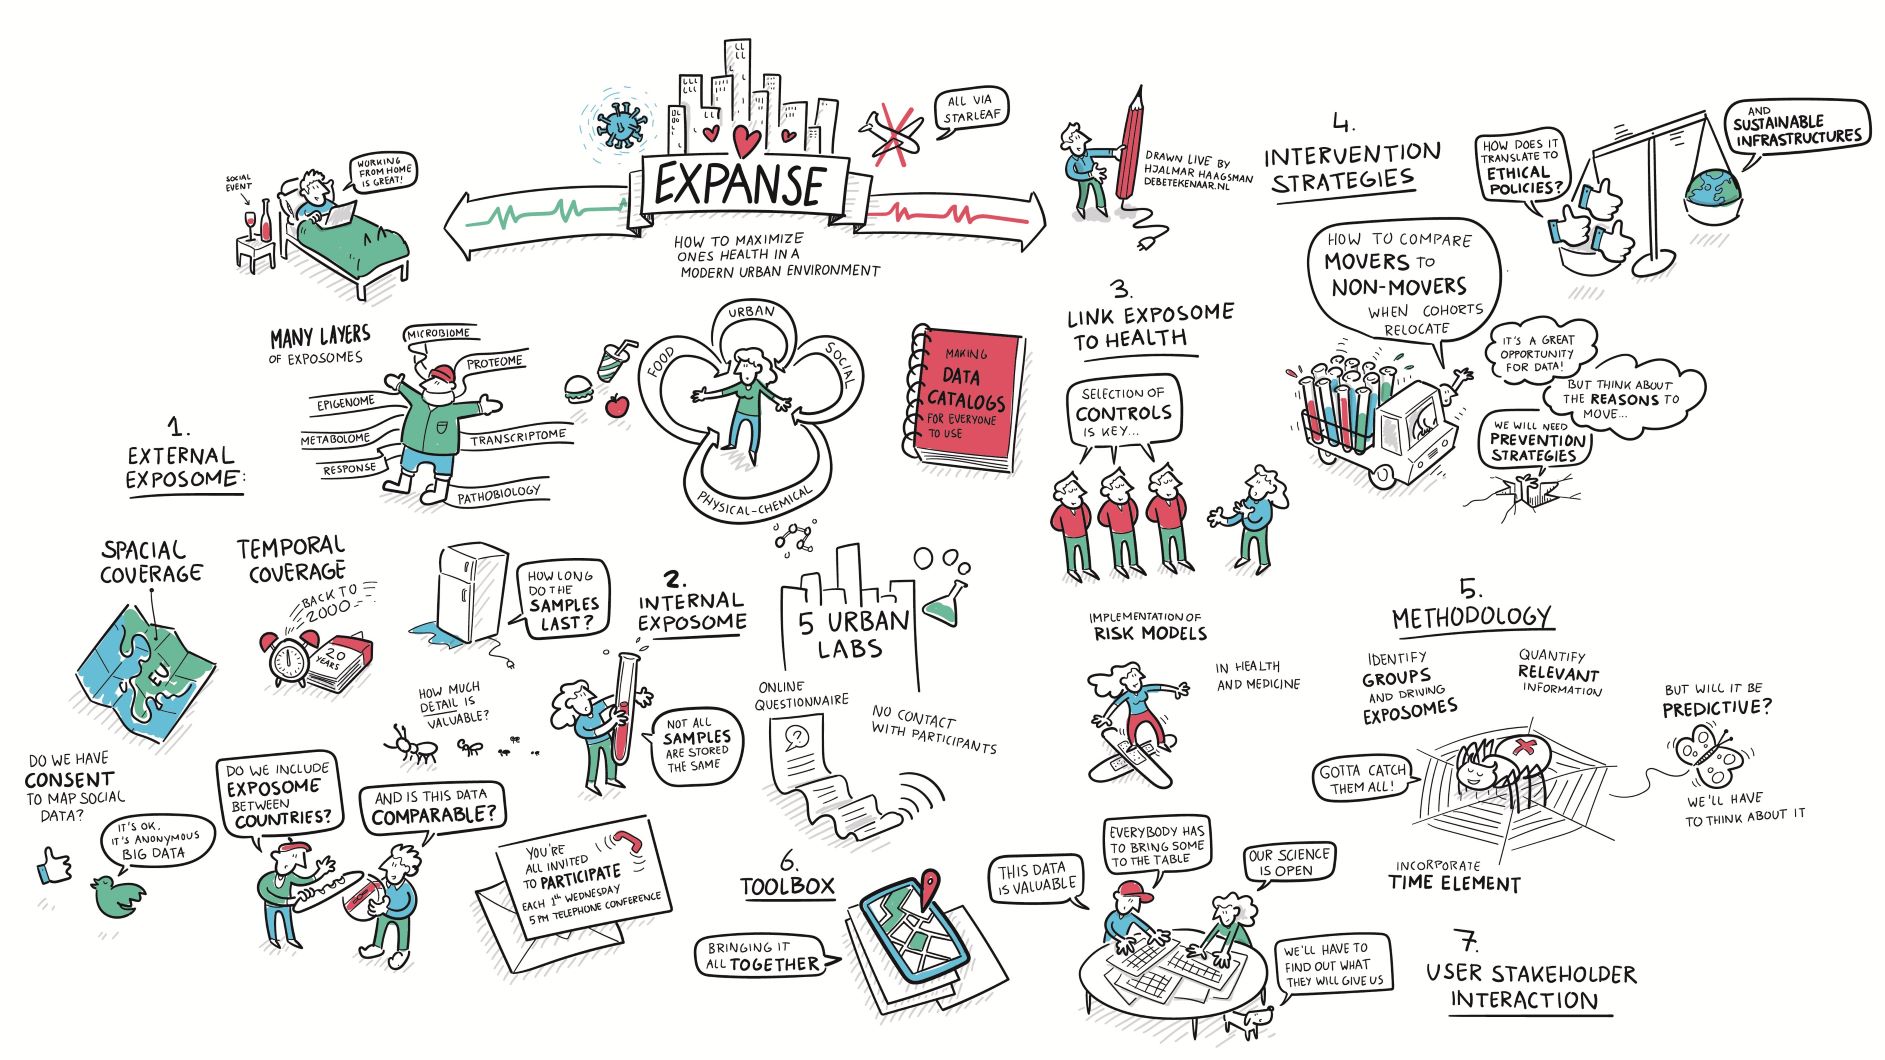 EXPANSE
HOW TO MAXIMIZE
ONES HEALTH IN A
MODERN URBAN ENVIRONMENT
ALL VIA
STARLEAF
SOCIAL
EVENT
WORKING
FROM HOME
IS GREAT!
DRAWN LIVE BY
HJALMAR HAAGSMAN
DEBETEKENAAR.NL
1.
EXTERNAL
EXPOSOME:
MANY LAYERS
OF EXPOSOMES
MICROBIOME
PROTEOME
EPIGENOME
METABOLOME
TRANSCRIPTOME
RESPONSE
PATHOBIOLOGY
URBAN
FOOD
SOCIAL
PHYSICAL-CHEMICAL
MAKING
DATA
CATALOGS
FOR EVERYONE
TO USE
SPACIAL
COVERAGE
EU
TEMPORAL
COVERAGE
BACK TO
2000
20
YEARS
DO WE HAVE
CONSENT
TO MAP SOCIAL
DATA?
IT'S OK,
IT'S ANONYMOUS
BIG DATA
DO WE INCLUDE
EXPOSOME
BETWEEN
COUNTRIES?
AND IS THIS DATA
COMPARABLE?
2.
INTERNAL
EXPOSOME
HOW LONG
DO THE
SAMPLES
LAST?
HOW MUCH
DETAIL IS
VALUABLE?
NOT ALL
SAMPLES
ARE STORED
THE SAME
5 URBAN
LABS
ONLINE
QUESTIONNAIRE
?
NO CONTACT
WITH PARTICIPANTS
YOU'RE
ALL INVITED
TO PARTICIPATE
EACH 1st WEDNESDAY
5 PM TELEPHONE CONFERENCE
3.
LINK EXPOSOME
TO HEALTH
SELECTION OF
CONTROLS
IS KEY...
IMPLEMENTATION OF
RISK MODELS
IN HEALTH
AND MEDICINE
4.
INTERVENTION
STRATEGIES
HOW DOES IT
TRANSLATE TO
ETHICAL
POLICIES?
AND
SUSTAINABLE
INFRASTRUCTURES
HOW TO COMPARE
MOVERS TO
NON-MOVERS
WHEN COHORTS
RELOCATE
IT'S A GREAT
OPPORTUNITY
FOR DATA!
BUT THINK ABOUT
THE REASONS TO
MOVE...
WE WILL NEED
PREVENTION
STRATEGIES
5.
METHODOLOGY
IDENTIFY
GROUPS
AND DRIVING
EXPOSOMES
QUANTIFY
RELEVANT
INFORMATION
BUT WILL IT BE
PREDICTIVE?
GOTTA CATCH
THEM ALL!
WE'LL HAVE
TO THINK ABOUT IT
INCORPORATE
TIME ELEMENT
6.
TOOLBOX
BRINGING IT
ALL TOGETHER
THIS DATA
IS VALUABLE
EVERYBODY HAS
TO BRING SOME
TO THE TABLE
OUR SCIENCE
IS OPEN
WE'LL HAVE TO
FIND OUT WHAT
THEY WILL GIVE US
7.
USER STAKEHOLDER
INTERACTION